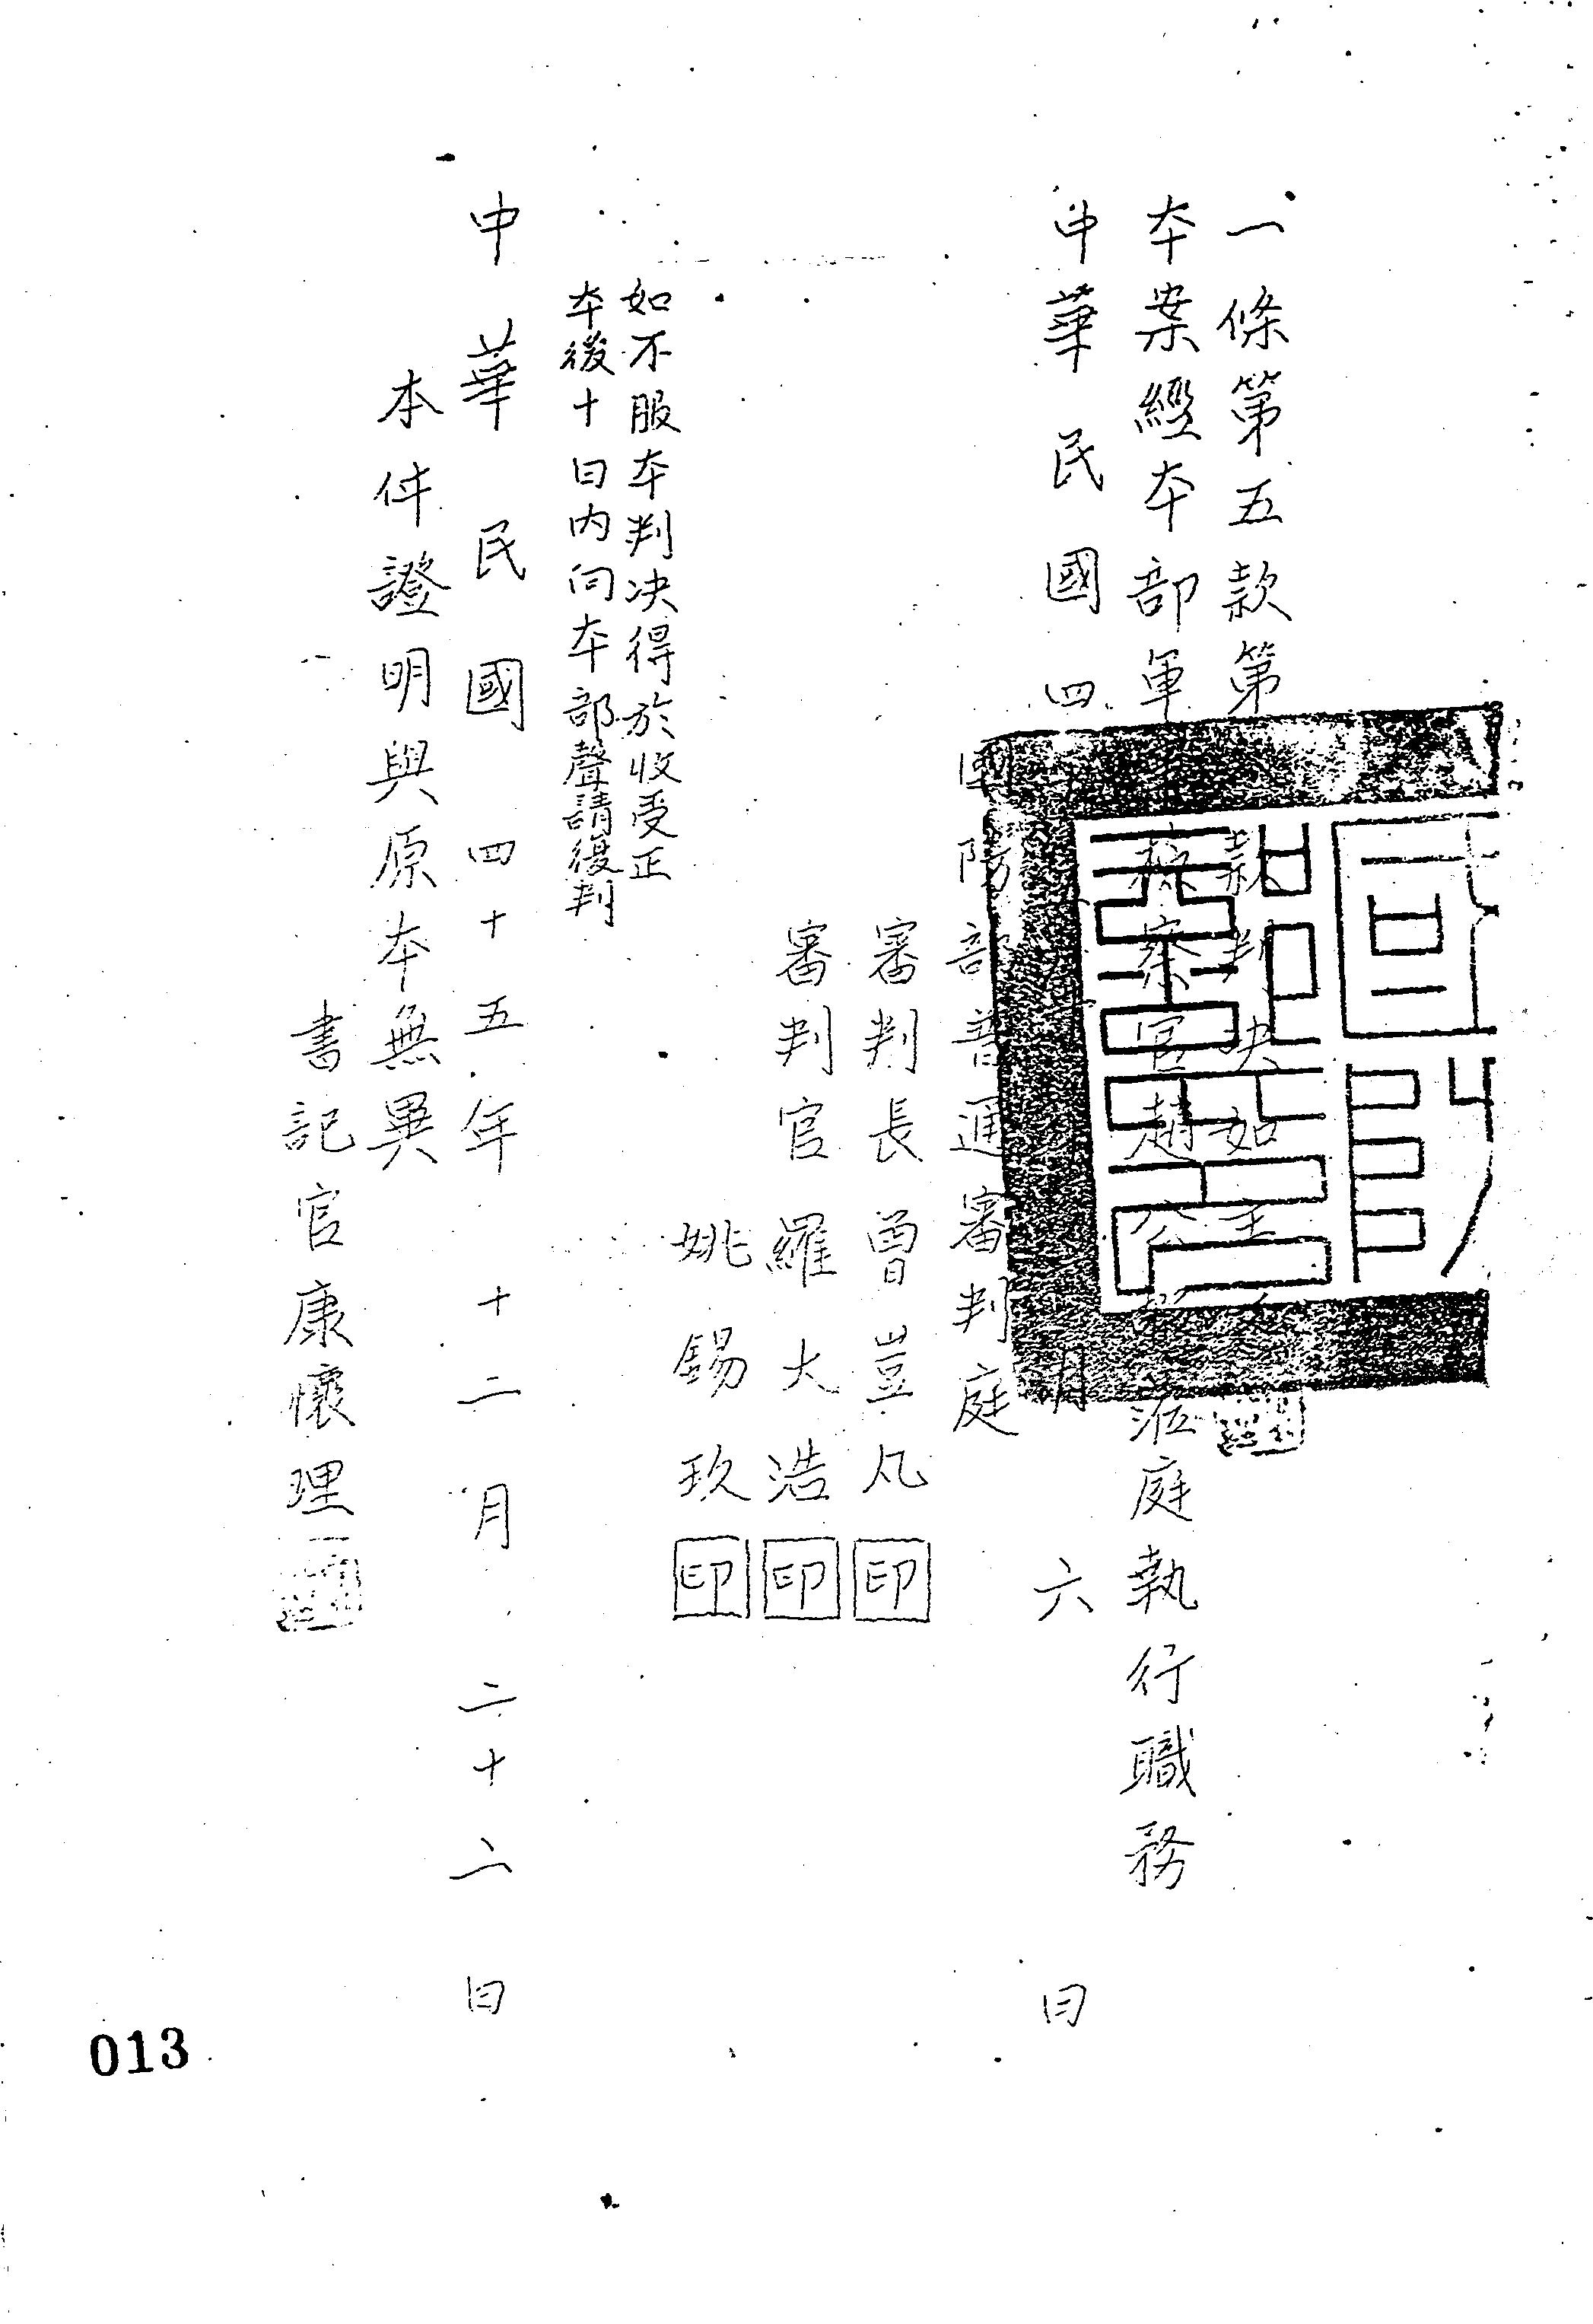 一條第五款第 款判決如主文
本案經本部軍 檢察官趙公 蒞庭執行職務
中華民國四 月 六 日
國防部普通審判庭
審判長曾豈凡印
審判官羅大浩印
姚錫玖印
如不服本判決得於收受正
本後十日內向本部聲請復判
中華民國四十五年十二月二十二日
本件證明與原本無異
書記官康懷理
013